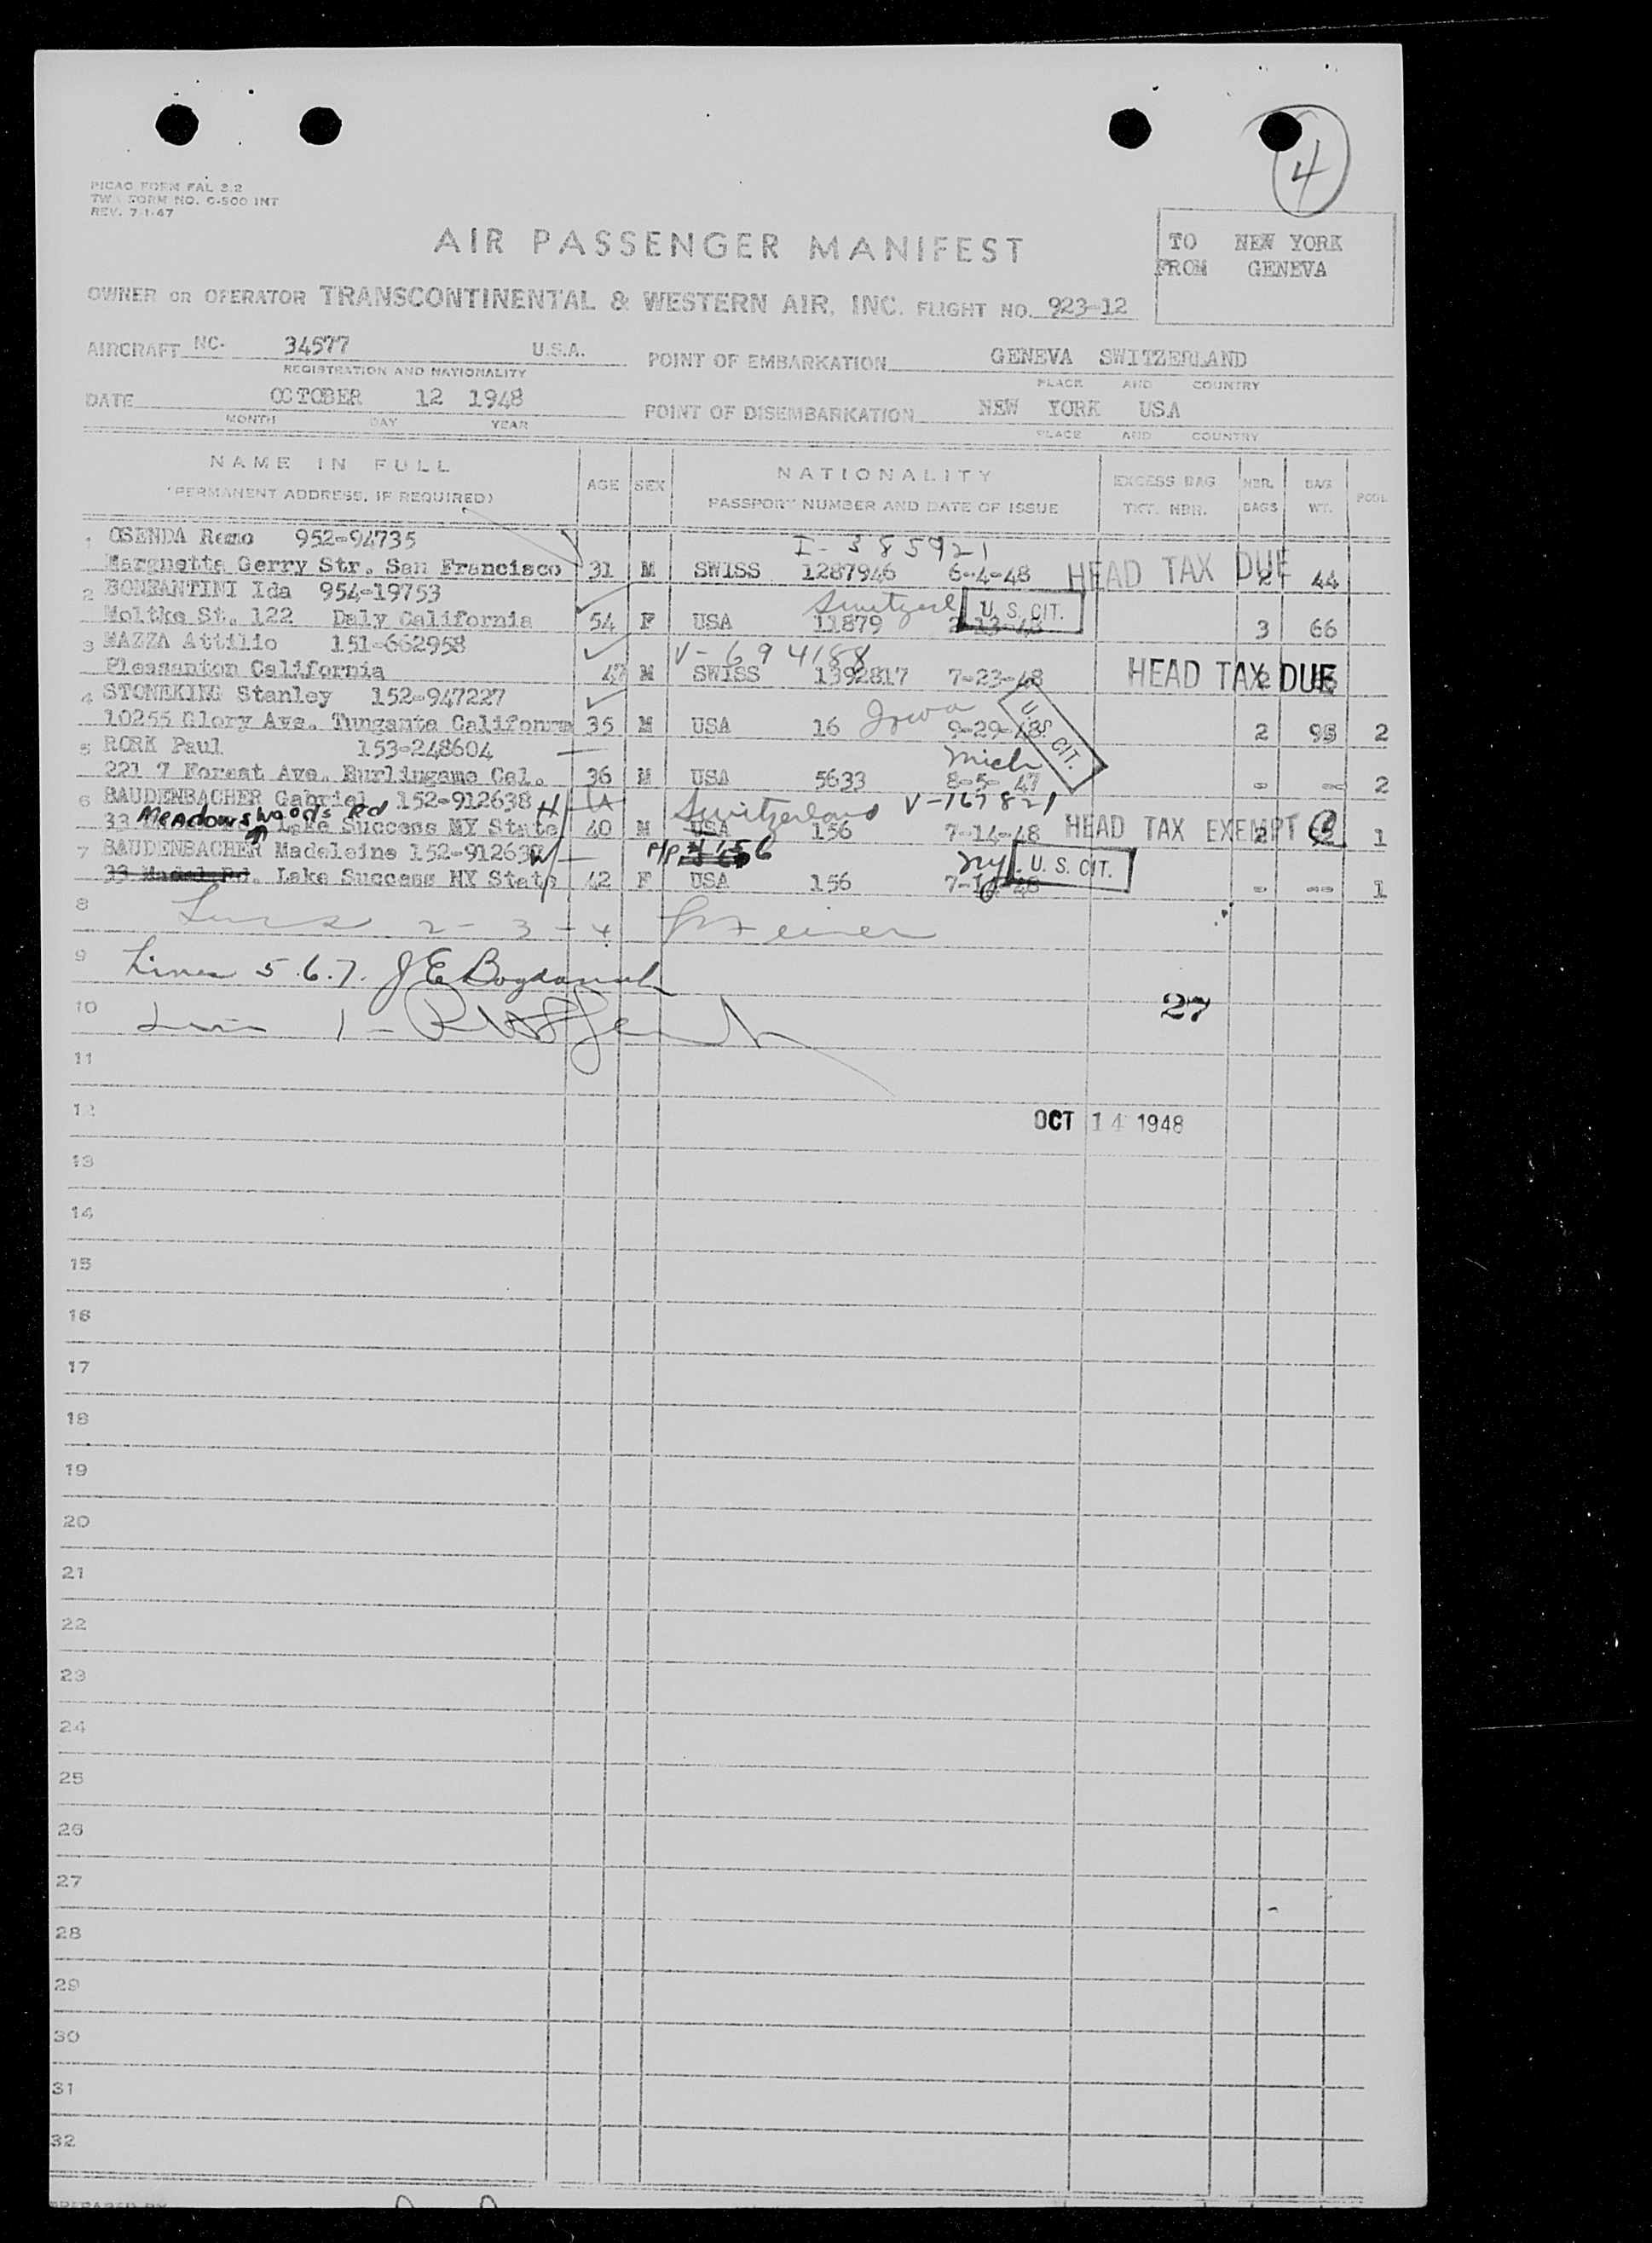 4
PICAO FORM FAL 3.2
TWA FORM NO. C-500 INT
REV. 7-1-47
AIR PASSENGER MANIFEST
TO NEW YORK
FROM GENEVA
OWNER OR OPERATOR TRANSCONTINENTAL & WESTERN AIR, INC. FLIGHT NO. 923-12
AIRCRAFT NC- 34577 U.S.A. POINT OF EMBARKATION GENEVA SWITZERLAND
REGISTRATION AND NATIONALITY PLACE AND COUNTRY
DATE OCTOBER 12 1948 POINT OF DISEMBARKATION NEW YORK USA
MONTH DAY YEAR PLACE AND COUNTRY
NAME IN FULL AGE SEX NATIONALITY EXCESS BAG NBR. BAG POOL
(PERMANENT ADDRESS, IF REQUIRED) PASSPORT NUMBER AND DATE OF ISSUE TKT. NBR. BAGS WT.
1 OSENDA Remo 952-94735 I-385921
Marguetta Gerry Str. San Francisco 31 M SWISS 1287946 6-4-48 HEAD TAX DUE 2 44
2 BONFANTINI Ida 954-19753 U. S. CIT.
Moltke St. 122 Daly California 54 F USA 11879 2-13-48 3 66
3 MAZZA Attilio 151-662958 V-694188
Pleasanton California 47 M SWISS 1392817 7-23-48 HEAD TAX DUE 2
4 STONEKING Stanley 152-947227 Iowa U. S. CIT.
10255 Glory Ave. Tungante Califonrn 35 M USA 16 9-29-48 2 95 2
5 RORK Paul 153-248604 Mich
221 7 Forest Ave. Burlingame Cal. 36 M USA 5633 8-5-47 - -- 2
6 BAUDENBACHER Gabriel 152-912638 H Switzerland V-167821
33 Meadowswoods Rd Lake Success NY State 40 M USA 156 7-14-48 HEAD TAX EXEMPT 2 1
7 BAUDENBACHER Madeleine 152-912639 W NY U. S. CIT.
33 Madel Rd. Lake Success NY State 42 F USA 156 - -- 1
8 Lines 2-3-4
9 Lines 5.6.7.
10 1- 27
11
12 OCT 14 1948
13
14
15
16
17
18
19
20
21
22
23
24
25
26
27
28
29
30
31
32
PREPARED BY